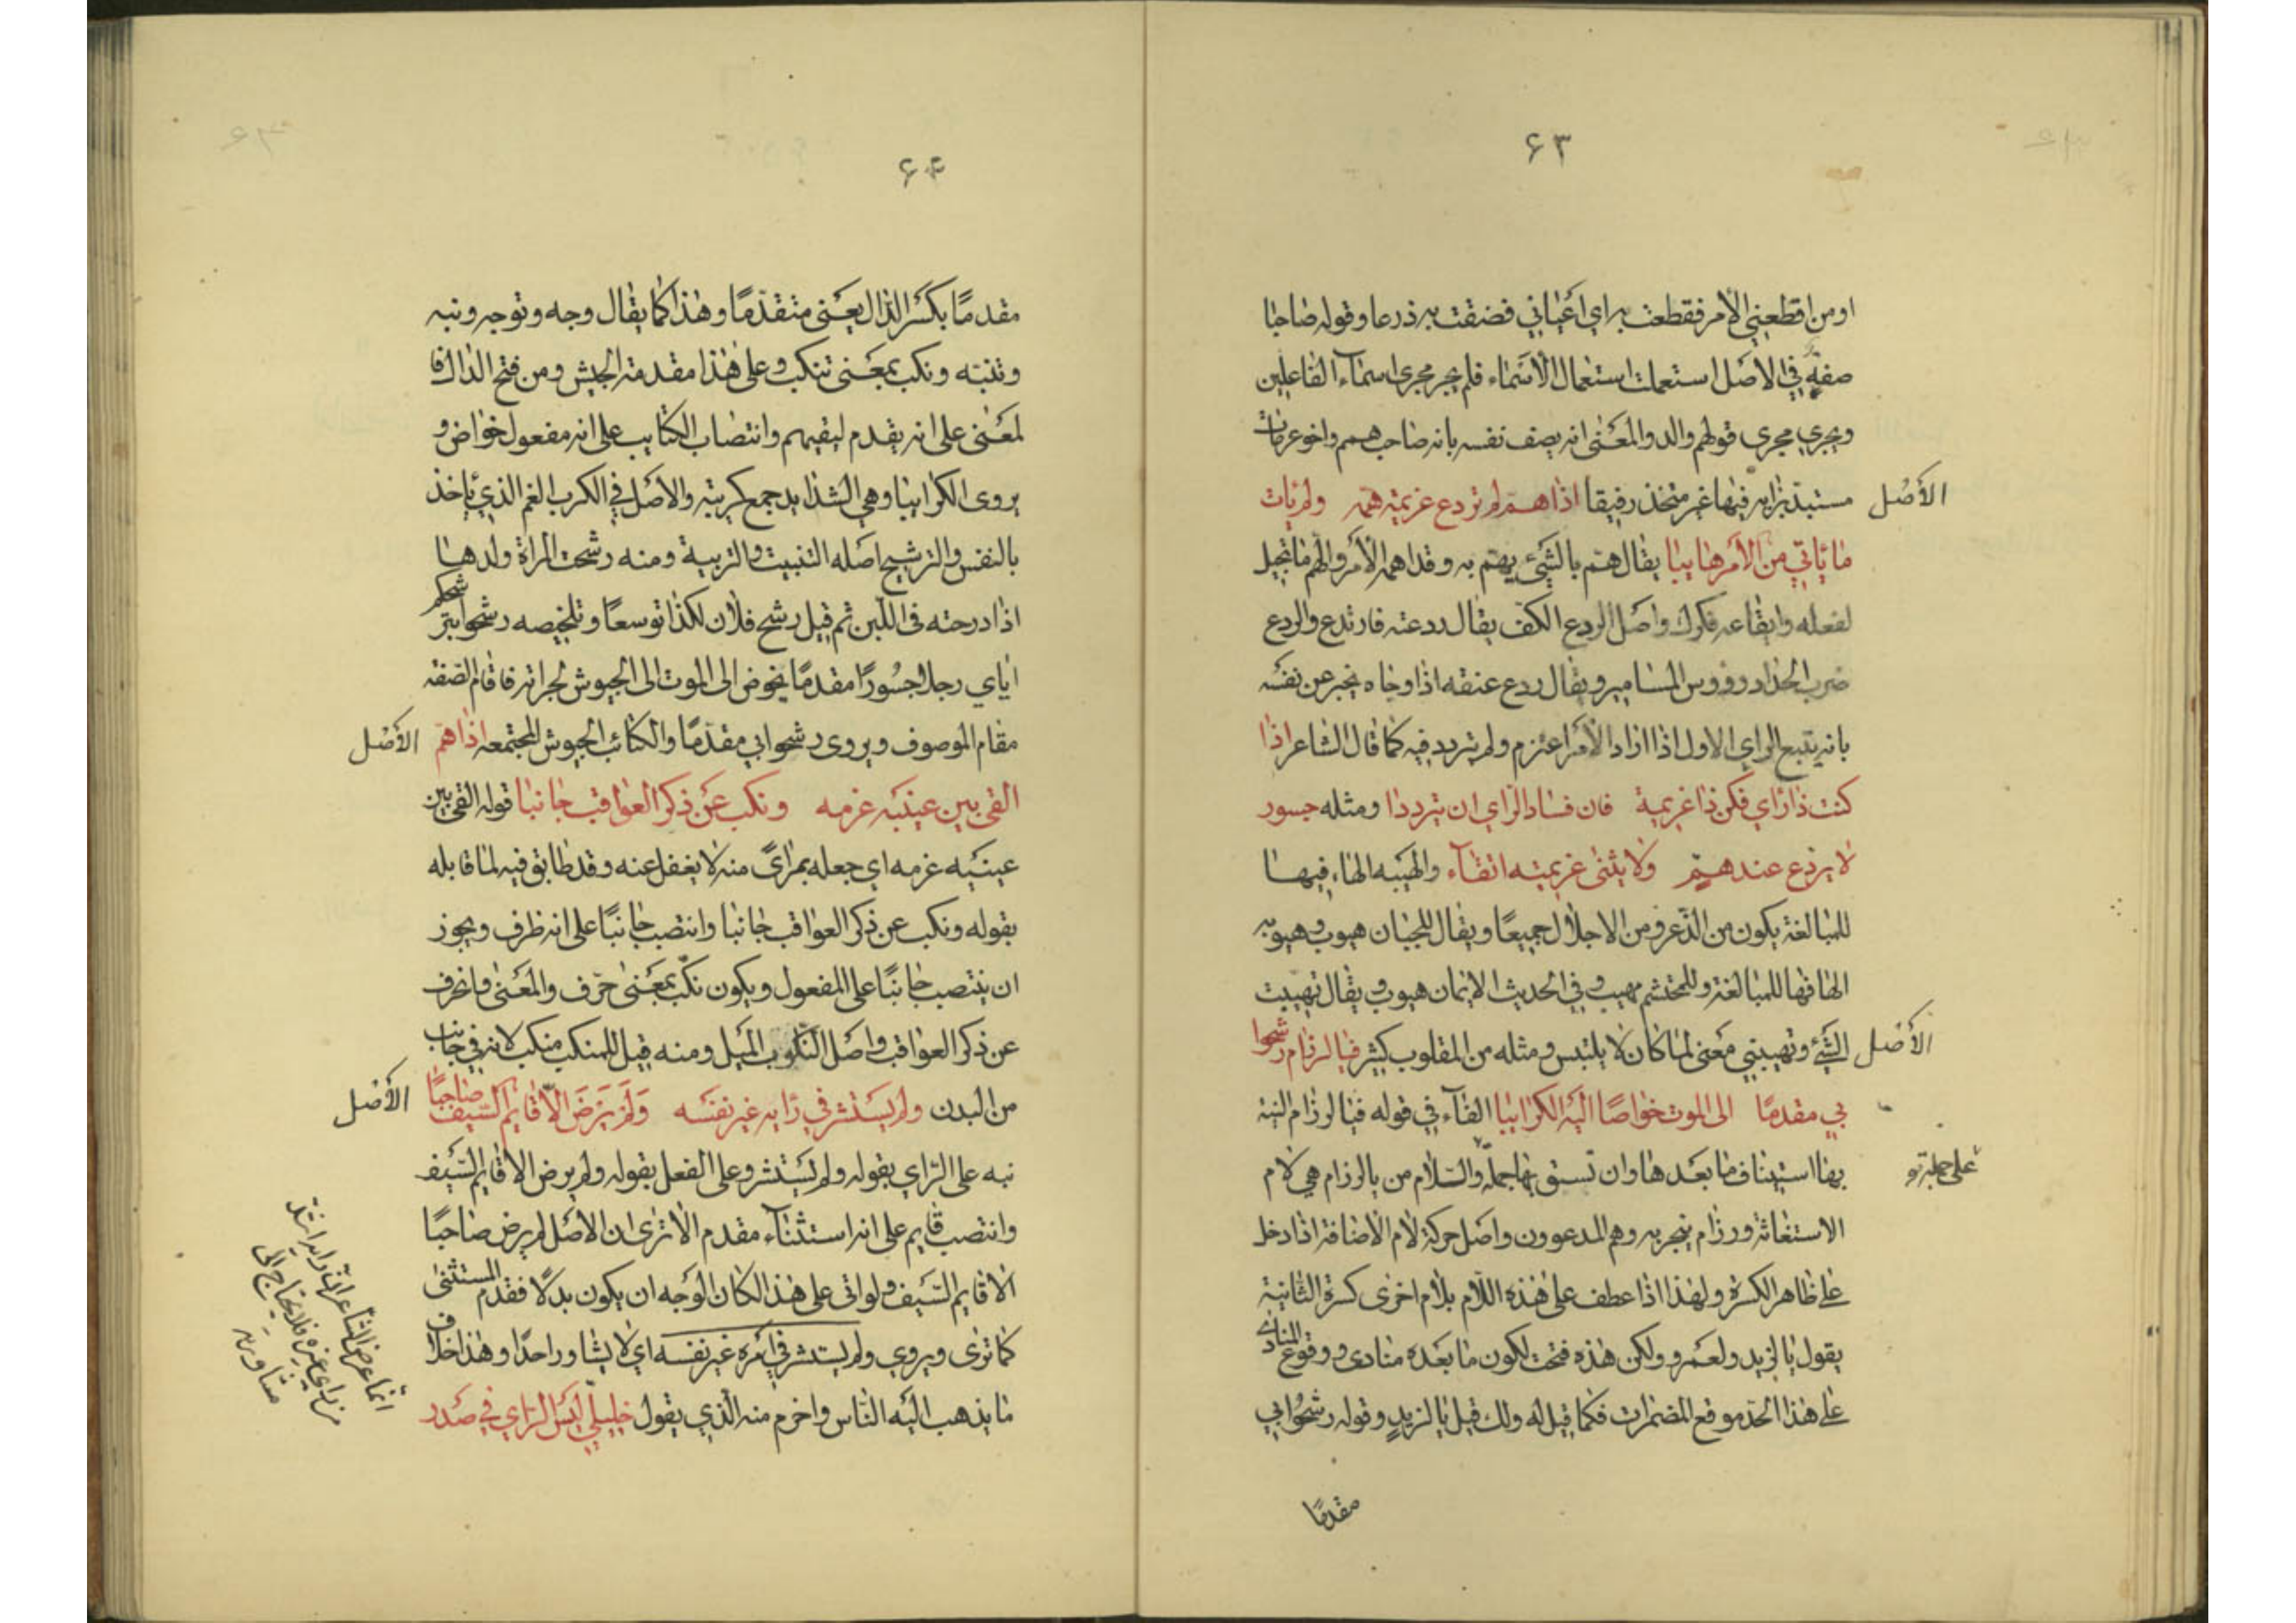 ۶۳
او من اقطعني الأمر فقطعت به اي اعياني فضقت به ذرعا وقوله صاحبا
صفة في الاصل استعملت استعمال الأسماء فلم يجر مجرى اسماء الفاعلين
ويجري مجرى قولهم والد والمعنى انه يصف نفسه بانه صاحب همم واخو عزمات
الأصل
مستبد برايه فيها غير متخذ رفيقا اذا هم لم تردع عزيمة همه ولم يات
ما ياتي من الأمر هايبا يقال هم بالشيء يهم به وقد اهمه الأمر والهم ما تجيل
لفعله وايقاعه فكرك واصل الردع الكف يقال ردعته فارتدع والردع
ضرب الحداد رووس المسامير ويقال ردع عنقه اذا وجاه يخبر عن نفسه
بانه يتبع الراي الاول اذا اراد الأمر اعتزم ولم يتردد فيه كما قال الشاعر اذا
كنت ذا راي فكن ذا عزيمة فان فساد الراي ان تترددا ومثله جسور
لا يردع عند هم ولا يثنى عزيمته اتقاء والهيبه الهاء فيها
للمبالغة يكون من الذعر ومن الاجلال جميعًا ويقال للجبان هيوب وهيوبه
الها فها للمبالغة وللمحتشم مهيب وفي الحديث الايمان هيوب ويقال تهيبت
الأصل
الشيء وتهيبني معنى لما كان لا يلتبس ومثله من المقلوب كثير فيا لرزام رشحوا
بي مقدمًا الى الموت خواضًا اليه الكرايبا الفاء في قوله فيا لرزام النية
بها استيناف ما بعدها وان تسنق بها جملة والسلام من يالرزام هي لام
على جملة تو
الاستغاثة ورزام ينجر به وهم المدعوون واصل حركة لام الاضافة اذا دخل
على ظاهر الكسرة ولهذا اذا عطف على هذه اللام بلام اخرى كسرة الثانية
يقول يا لزيد ولعمرو ولكن هذه فتحت لكون ما بعده منادى ووقوع المنادى
على هذا الحد موقع المضمرات فكما قيل له ولك قيل يا لزيدٍ وقوله رشحوا بي
مقدمًا
۶۴
مقدمًا بكسر الدال يعني متقدّمًا وهذا كما يقال وجه وتوجه ونبه
وتنبّه ونكب بمعنى تنكب وعلى هذا مقدمة الجيش ومن فتح الدال فا
لمعنى على انه يقدم ليقيهم وانتصاب الكتايب على انه مفعول خواض و
يروى الكرايبا وهي الشدايد جمع كريبة والاصل في الكرب الغم الذي ياخذ
بالنفس والترشيح اصله التنبيت والتربية ومنه رشحت المراة ولدها
اذا درجته فى اللبن ثم قيل رشح فلان لكذا توسعًا وتلخيصه رشحوا بترشحكم
اياي رجلا جسورًا مقدمًا يخوض الى الموت الى الجيوش لجراته فاقام الصفة
مقام الموصوف ويروى رشحوا بي مقدّمًا والكتائب الجيوش المجتمعه اذا هم
الأصل
القى بين عينيه عزمه ونكب عن ذكر العواقب جانبا قوله القى بين
عينيه عزمه اي جعله بمراىً منه لا يغفل عنه وقد طابق فيه لما قابله
بقوله ونكب عن ذكر العواقب جانبا وانتصب جانبًا على انه ظرف ويجوز
ان ينتصب جانبًا على المفعول ويكون نكّب بمعنى حرّف والمعنى وانحرف
عن ذكر العواقب واصل النكوب الميل ومنه قيل للمنكب منكب لانه في جانب
من البدن ولم يستشر في رايه غير نفسه ولم يرض الّا قايم السّيف صاحبًا
الأصل
نبه على الرّاي بقوله ولم يستشر وعلى الفعل بقوله ولم يرض الا قايم السّيف
وانتصب قايم على انه استثناء مقدم الا ترى ان الاصل لم يرض صاحبًا
الا قايم السّيف ولو اتى على هذا لكان الوجه ان يكون بدلًا فقدم المستثنى
كما ترى ويروى ولم يستشر في امره غير نفسه اي لا يشاور احدًا وهذا خلاف
ما يذهب اليه الناس واخرم منه الّذي يقول خليليّ ليس الراي في صدر
انما غرض الشاعر انه رايه اشد
من راي غيره فلا يحتاج الى
مشاوره